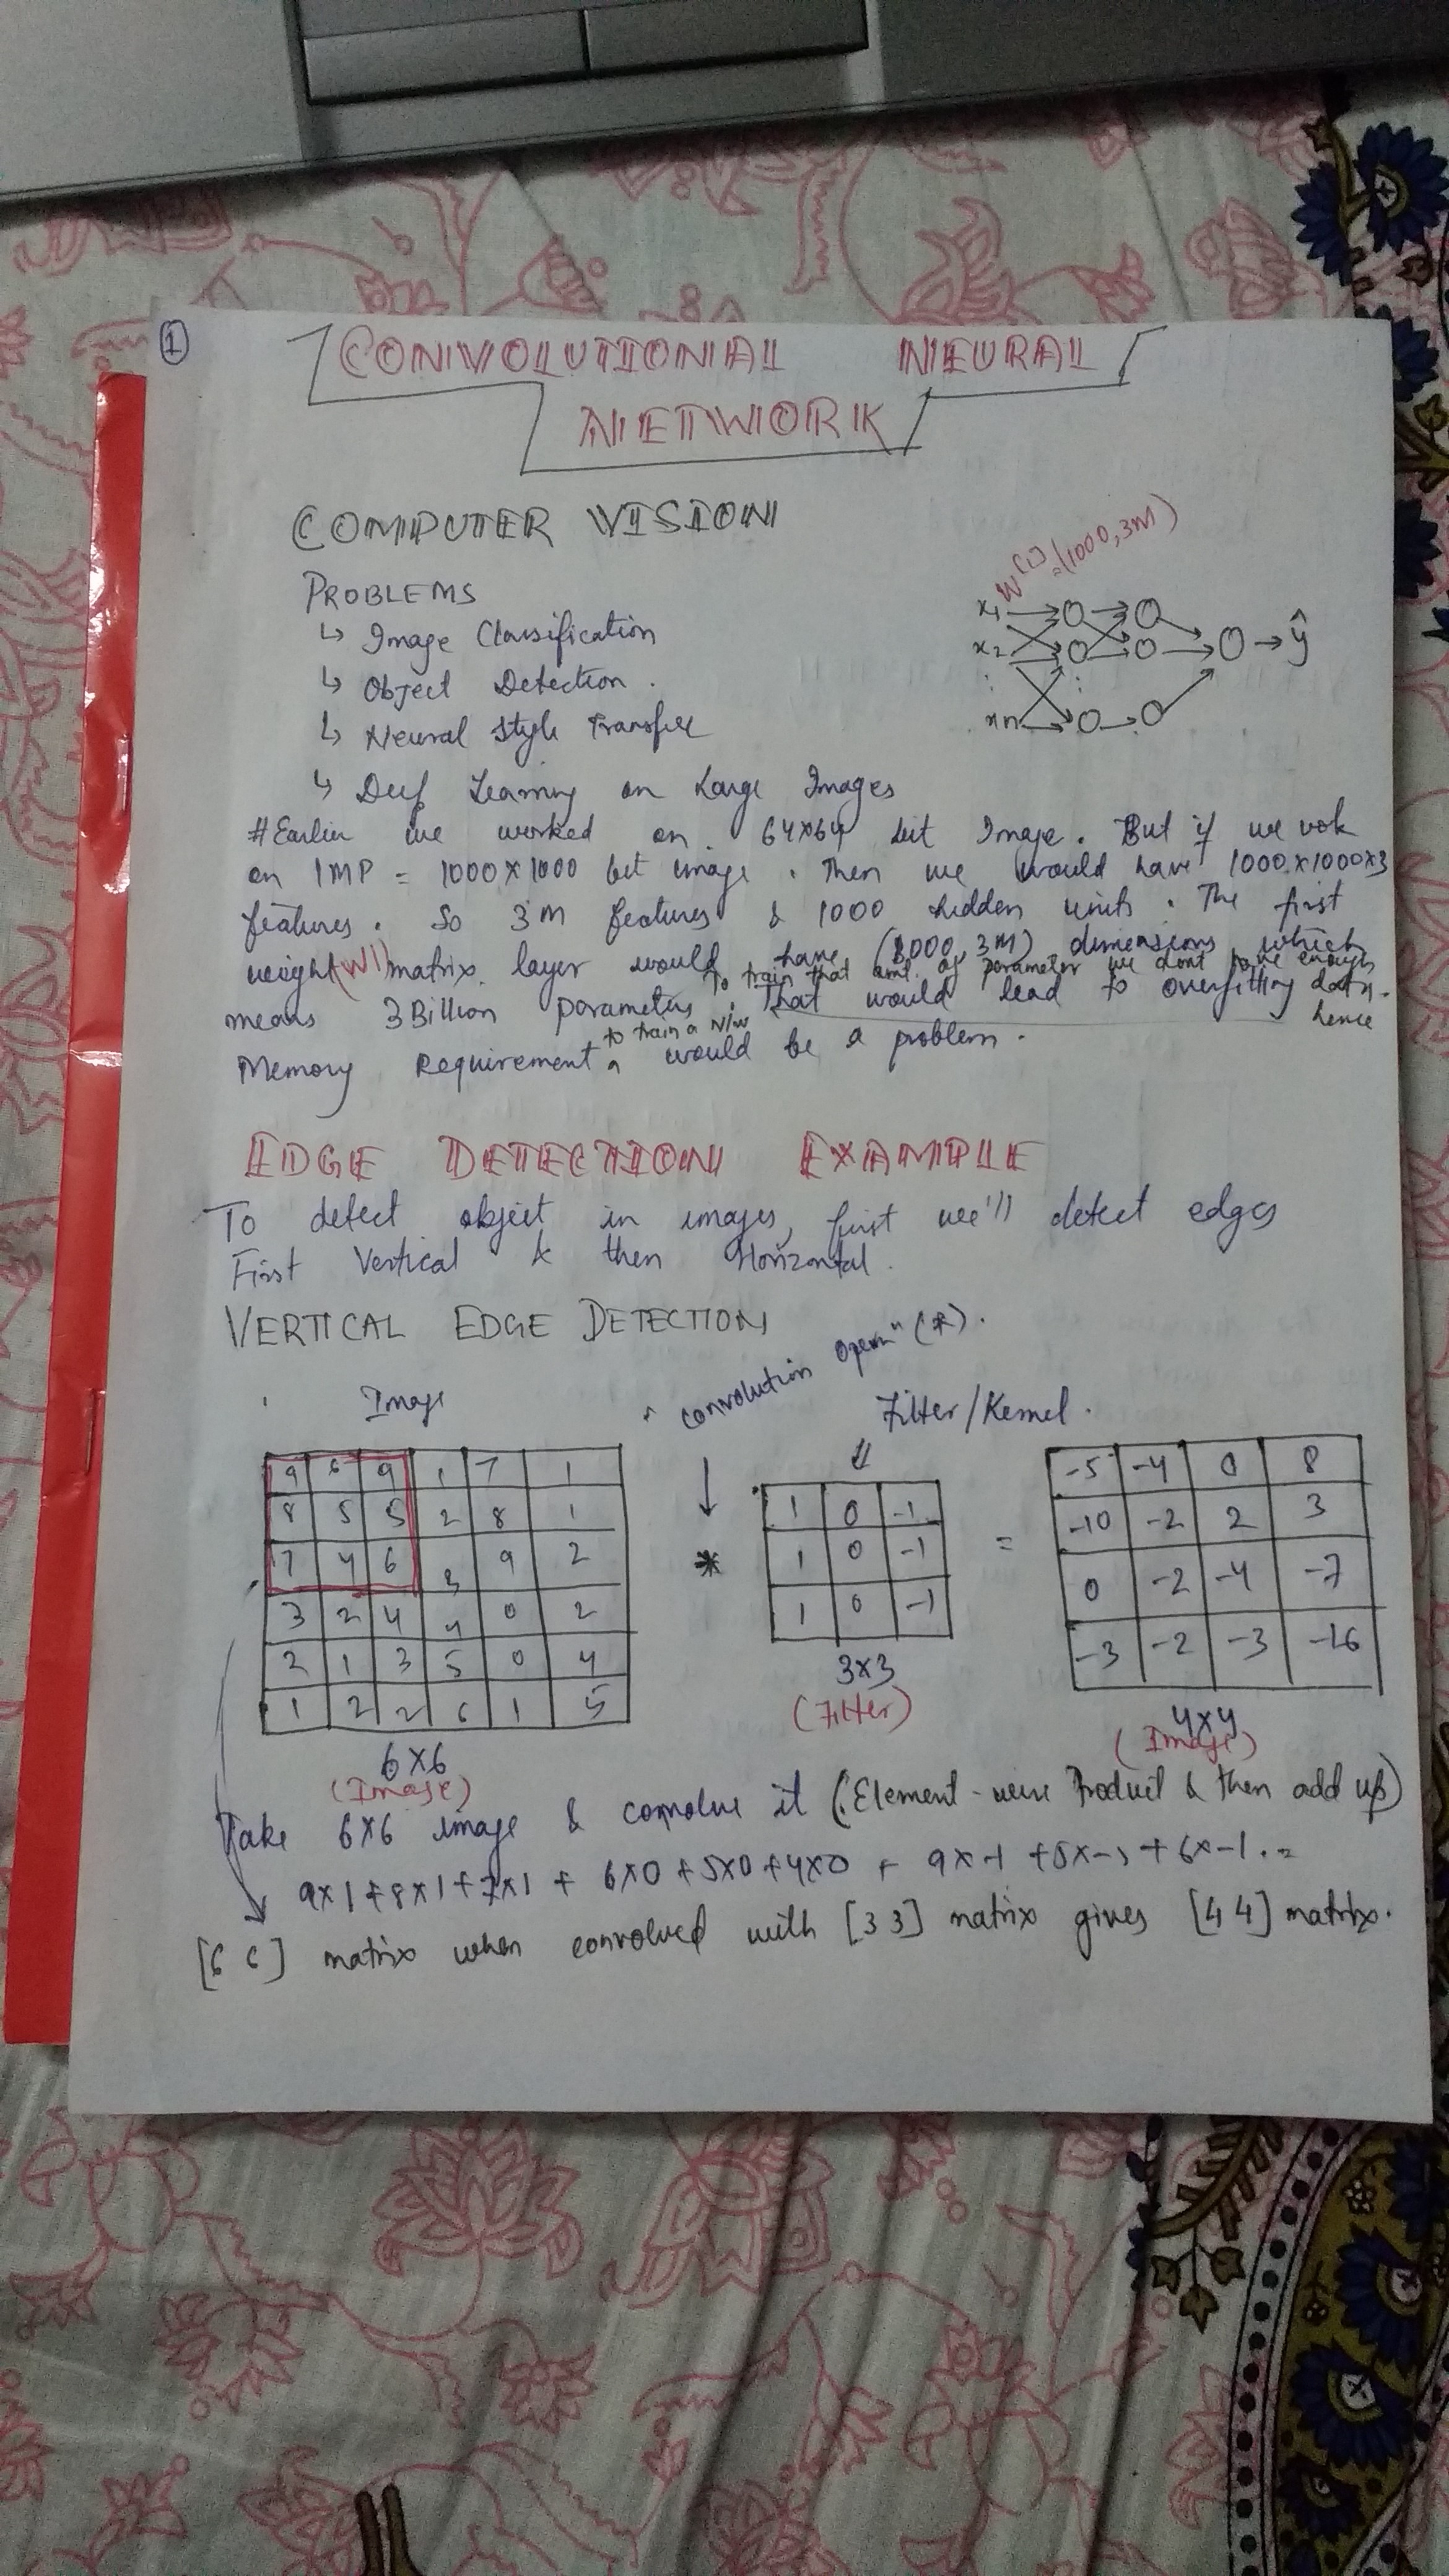 1
CONVOLUTIONAL NEURAL
NETWORK
COMPUTER VISION
W[1] = (1000, 3M)
PROBLEMS
↳ Image Classification
↳ Object Detection.
↳ Neural Style Transfer
↳ Deep Learning on Large Images
x1
x2
xn
ŷ
#Earlier we worked on 64x64 bit Image. But if we wok
on 1MP = 1000x1000 bit image. Then we would have 1000x1000x3
features. So 3M features & 1000 hidden units. The first
weight (W1) matrix layer would have (1000, 3M) dimensions which
To train that amt. of parameter we dont have enough data. hence
means 3 Billion parameters. That would lead to overfitting
to train a N/w
Memory Requirement would be a problem.
EDGE DETECTION EXAMPLE
To detect object in images, first we'll detect edges
First Vertical & then Horizontal.
VERTICAL EDGE DETECTION
Image
"convolution opern" (*).
Filter/Kernel.
9 6 9 1 7 1
8 5 5 2 8 1
7 4 6 3 9 2
3 2 4 4 0 2
2 1 3 5 0 4
1 2 2 6 1 5
6x6
(Image)
*
1 0 -1
1 0 -1
1 0 -1
3x3
(Filter)
=
-5 -4 0 8
-10 -2 2 3
0 -2 -4 -7
-3 -2 -3 -16
4x4
(Image)
Take 6x6 image & convolve it (Element-wise Product & then add up)
9x1+8x1+7x1 + 6x0+5x0+4x0 + 9x-1 +5x-1+6x-1. =
[6 6] matrix when convolved with [3 3] matrix gives [4 4] matrix.